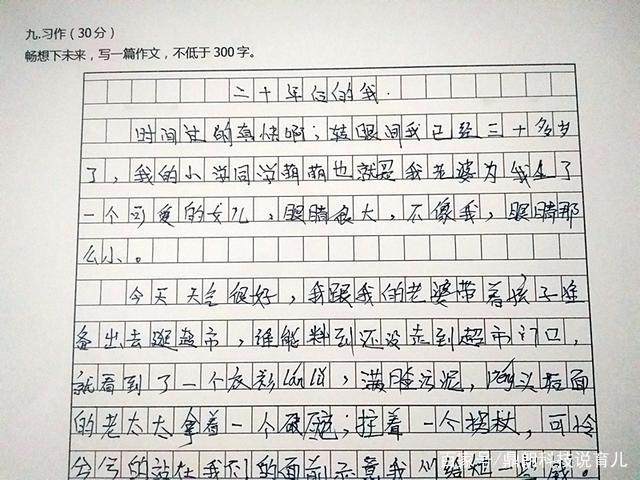 九.习作（30分）
畅想下未来，写一篇作文，不低于300字。
二十年后的我.
时间过的真快啊；转眼间我已经三十多岁
了，我的小学同学萌萌也就是我老婆为我生了
一个可爱的女儿，眼睛很大，不像我，眼睛那
么小。
今天天气很好，我跟我的老婆带着孩子准
备出去逛超市，谁能料到还没走到超市门口，
就看到了一个衣衫lán lǚ，满脸污泥，péng头垢面
的老太太拿着一个破碗；拄着一个拐杖，可怜
兮兮的站在我们的面前示意我们给她一些钱。
鼎郎科技说育儿